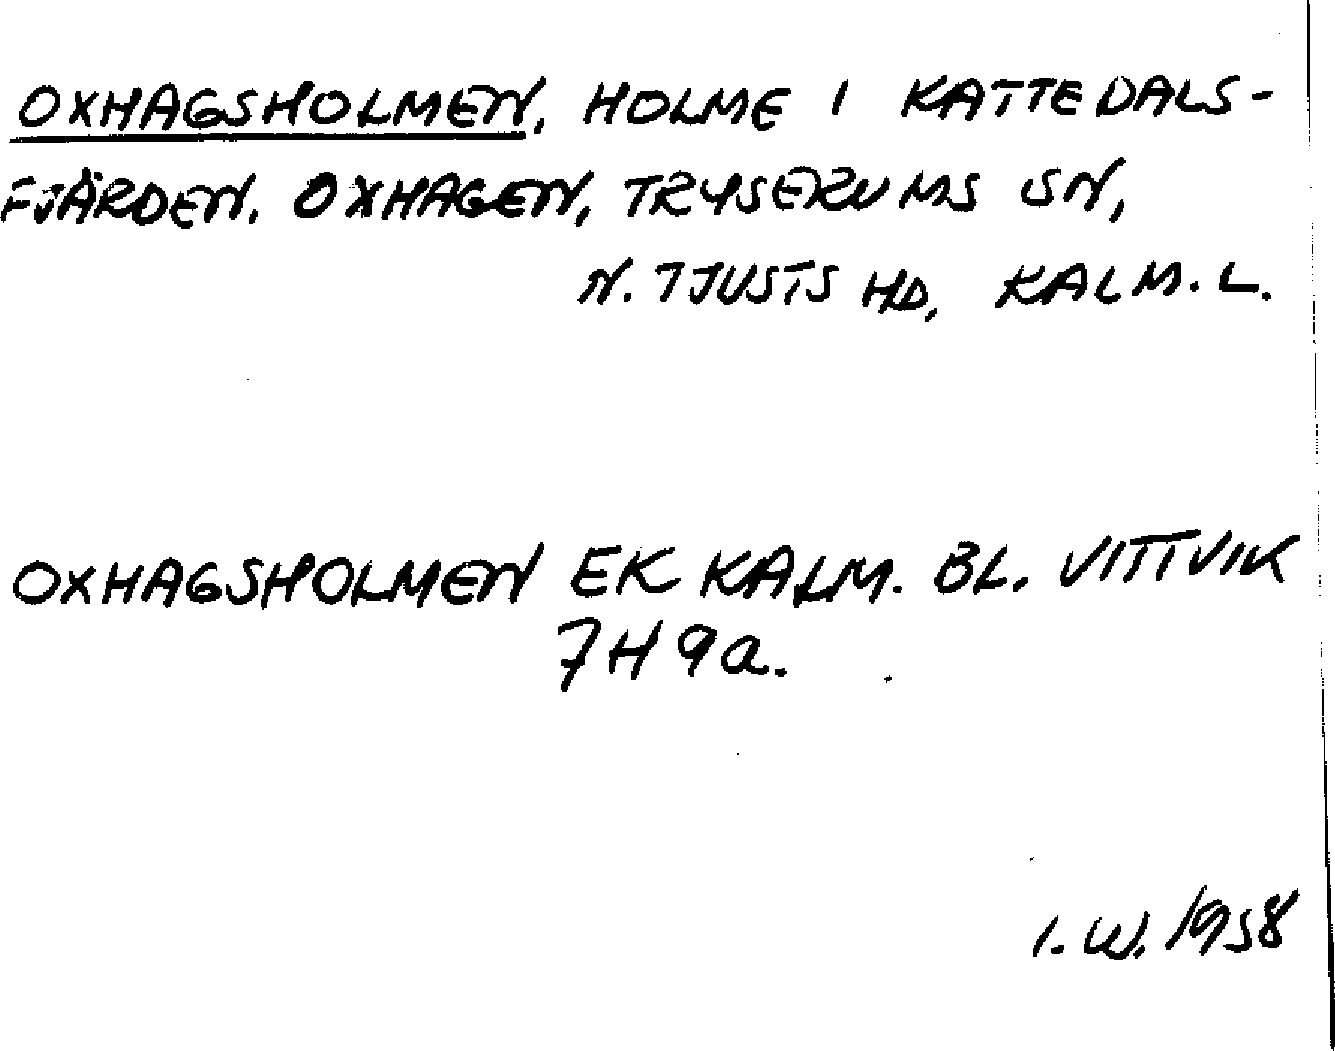 OXHAGSHOLMEN, HOLME I KATTEDALS-
FJÄRDEN. OXHAGEN, TRYSERUMS SN,
N. TJUSTS HD, KALM. L.
OXHAGSHOLMEN EK KALM. BL. VITTVIK
7H9a.
I. W. 1958